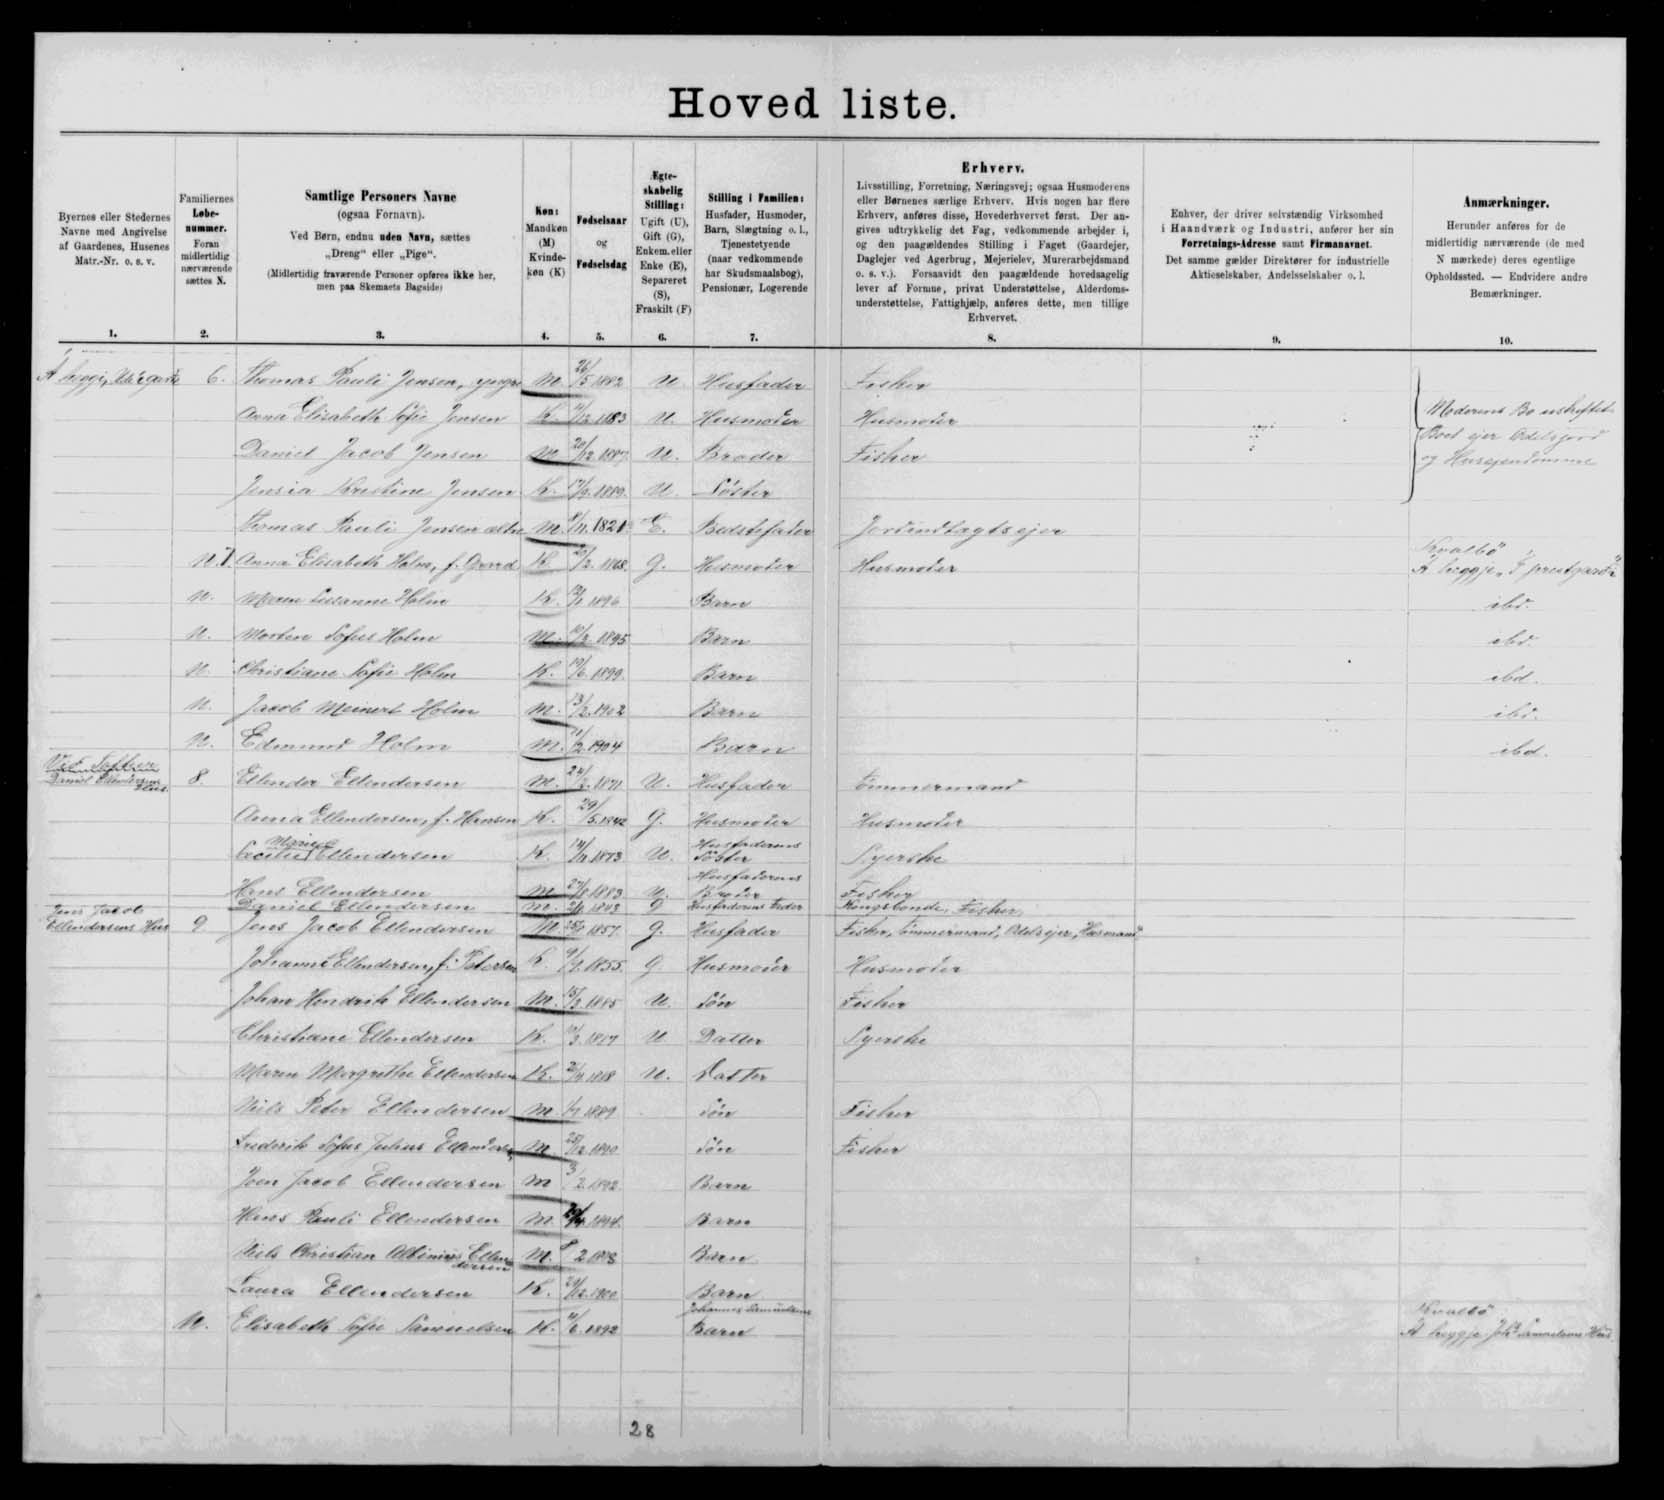 Hoved liste.
Byernes eller Stedernes Navne med Angivelse af Gaardenes, Husenes Matr.-Nr. o. s. v.
Familiernes Løbenummer. Foran midlertidig nærværende sættes N.
Samtlige Personers Navne
(ogsaa Fornavn).
Ved Børn, endnu uden Navn, sættes „Dreng“ eller „Pige“.
(Midlertidig fraværende Personer opføres ikke her, men paa Skemaets Bagside)
Køn: Mandkøn (M) Kvindekøn (K)
Fødselsaar og Fødselsdag
Ægteskabelig Stilling: Ugift (U), Gift (G), Enkem. eller Enke (E), Separeret (S), Fraskilt (F)
Stilling i Familien: Husfader, Husmoder, Barn, Slægtning o. l., Tjenestetyende (naar vedkommende har Skudsmaalsbog), Pensionær, Logerende
Erhverv.
Livsstilling, Forretning, Næringsvej; ogsaa Husmoderens eller Børnenes særlige Erhverv. Hvis nogen har flere Erhverv, anføres disse, Hovederhvervet først. Der angives udtrykkelig det Fag, vedkommende arbejder i, og den paagældendes Stilling i Faget (Gaardejer, Daglejer ved Agerbrug, Mejerielev, Murerarbejdsmand o. s. v.). Forsaavidt den paagældende hovedsagelig lever af Formue, privat Understøttelse, Alderdomsunderstøttelse, Fattighjælp, anføres dette, men tillige Erhvervet.
Enhver, der driver selvstændig Virksomhed i Haandværk og Industri, anfører her sin Forretnings-Adresse samt Firmanavnet. Det samme gælder Direktører for industrielle Aktieselskaber, Andelsselskaber o. l.
Anmærkninger.
Herunder anføres for de midlertidig nærværende (de med N mærkede) deres egentlige Opholdssted. — Endvidere andre Bemærkninger.
1. 2. 3. 4. 5. 6. 7. 8. 9. 10.
6. Thomas Pauli Jensen, yngre M. 26/5 1882 U Husfader Fisker
Anna Elisabeth Sofie Jensen K. /12 1883 U. Husmoder Husmoder Moderens Bo uskiftet
Daniel Jacob Jensen M. 20/12 1887. U. Broder Fisker Boet ejer Odelsjord
Jensia Kristine Jensen K. 17/9. 1889. U. Söster og Husejendomme
Thomas Pauli Jensen ældre M. /11. 1821. E. Bedstefader Jordindtægtsejer
N. 7. Anna Elisabeth Holm, f. K. 20/2. 1868. G. Husmoder Husmoder Kvalbö
N. Maren Susanne Holm K. 1896 Barn ibd.
N. Morten Sofus Holm M. 10/2. 1895 Barn ibd.
N. Christiane Sofie Holm K. 19/6. 1899. Barn ibd.
N. Jacob Meinert Holm M. 13/2. 1902 Barn ibd.
N. Edmund Holm M. /2. 1904 Barn ibd.
Daniel Ellendersens Hus.
8. Ellender Ellendersen M. 24/2. 1871 U. Husfader Tömmermand
Anna Ellendersen, f. Hansen K. 29/5. 1842 G. Husmoder Husmoder
Cecilie Marie Ellendersen K. 1873 U. Husfaderens Söster Syerske
Hans Ellendersen M. 27/8 1883 U. Husfaderens Broder Fisker
Daniel Ellendersen M. 1843 G Husfaderens Fader Kongsbonde, Fisker
Jens Jacob
Ellendersens Hus 9 Jens Jacob Ellendersen M. 1857. G. Husfader Fisker, Tömmermand, Odelsejer, Husmand
Johanne Ellendersen, f. Petersen K. 9/ 1855. G Husmoder Husmoder
Johan Hendrik Ellendersen M. 15/3. 1885 U. Sön Fisker
Christiane Ellendersen K. /3. 1887 U Datter Syerske
Maren Margrethe Ellendersen K. 1888 U. Datter
Niels Peter Ellendersen M. 1889 Sön Fisker
Frederik Sofus Julius Ellendersen M. 25/12. 1890 Sön Fisker
Joen Jacob Ellendersen M 3/2. 1892. Barn
Hans Pauli Ellendersen M. 1894. Barn
Niels Christian Albinius Ellendersen M. 2 1898 Barn
Laura Ellendersen K. 29/12. 1900. Barn
N. Elisabeth Sofie Samuelsen K. /6. 1892 Johannes Samuelsens Barn Kvalbö
Á heyggje Johs Samuelsens Hus
28